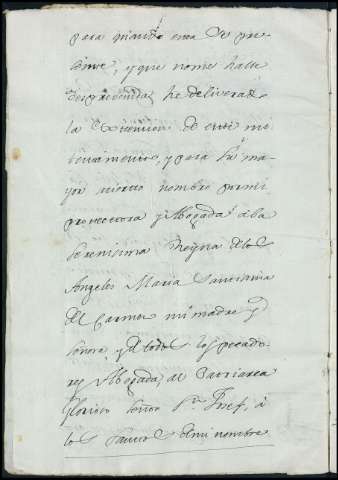 para quando esta se pre
sente, y que no me halle
desprevenida, he deliverado
la Extencion de este mi
testamento, y para su ma
yor acierto nombro por mi
protectora y Abogada a la
Serenissima Reyna de los
Angeles Maria Santissima
del Carmen mi madre y
Señora, y de todos los pecado
res Abogada, al Patriarca
Glorioso Señor Sn. Josef, à
los Santos de mi nombre